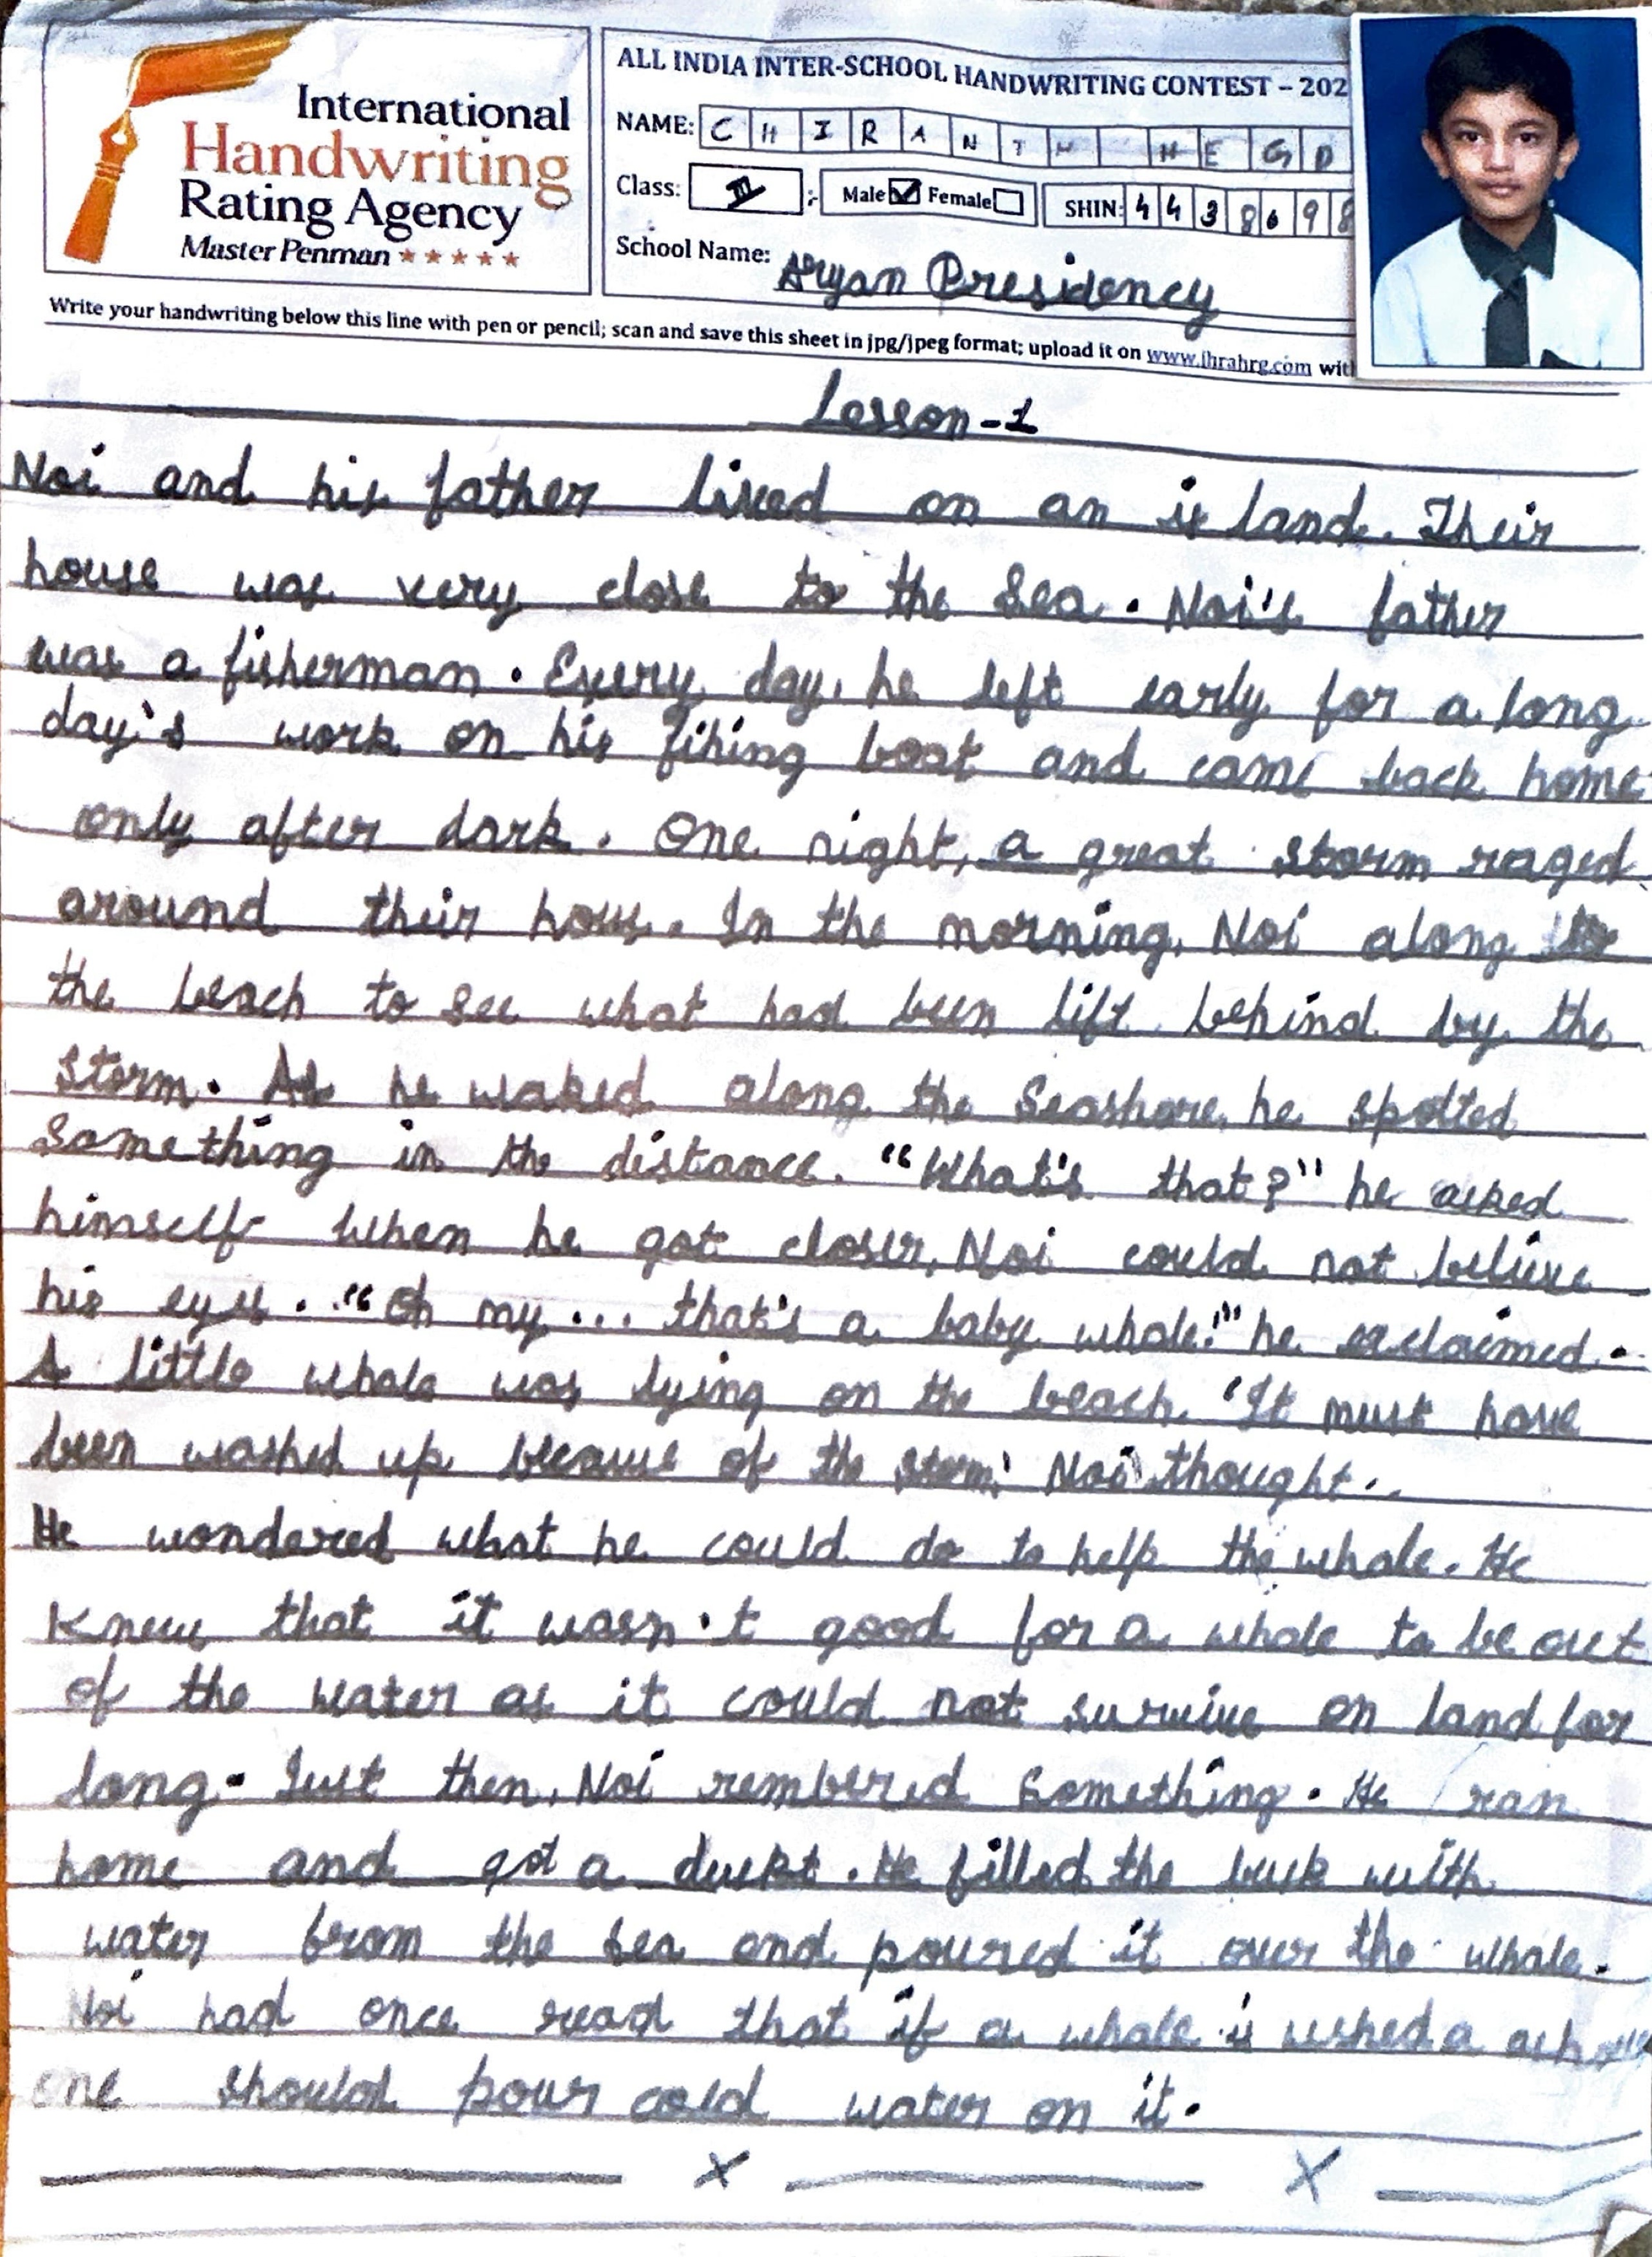 International
Handwriting
Rating Agency
Master Penman
ALL INDIA INTER-SCHOOL HANDWRITING CONTEST – 202
NAME: CHIRANTH HEGD
Class: Male Female SHIN: 4438698
School Name: Aryan Presidency
Write your handwriting below this line with pen or pencil; scan and save this sheet in jpg/jpeg format; upload it on www.ihrahrg.com with
Lesson-1
Noi and his father lived on an is land. Their
house was very close to the Sea. Noi's father
was a fisherman. Every day, he left early for a long
day's work on his fihing boat and came back home
only after dark. One night, a great storm raged
around their hous. In the morning, Noi along to
the beach to see what had been lift behind by the
storm. As he waked along the Seashore, he spotted
Something in the distance. "What's that?" he asked
himself When he got closer, Noi could not belive
his eyes. "Oh my... that's a baby whale!" he exclaimed.
A little whale was lying on the beach. 'It must have
been washed up because of the storm.' Noi thought..
He wondered what he could do to help the whale. He
Knew that it wasn't good for a whale to be out
of the water as it could not survive on land for
long. Just then, Noi rembered Something. He ran
home and got a . He filled the with
water from the sea and poured it over the whale.
Noi had once read that if a whale is ushed a
one should pour cold water on it.
x x